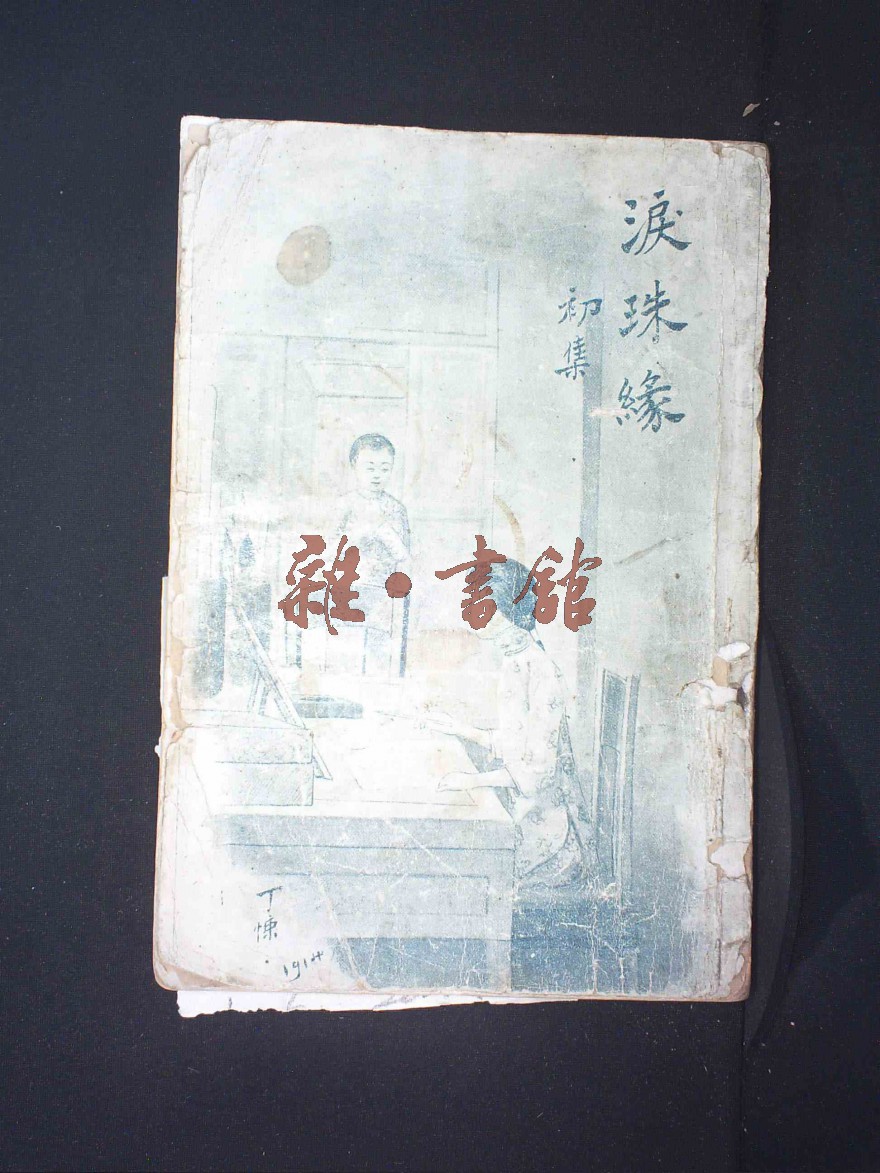 淚珠緣
初集
雜·書館
丁悚
·1914